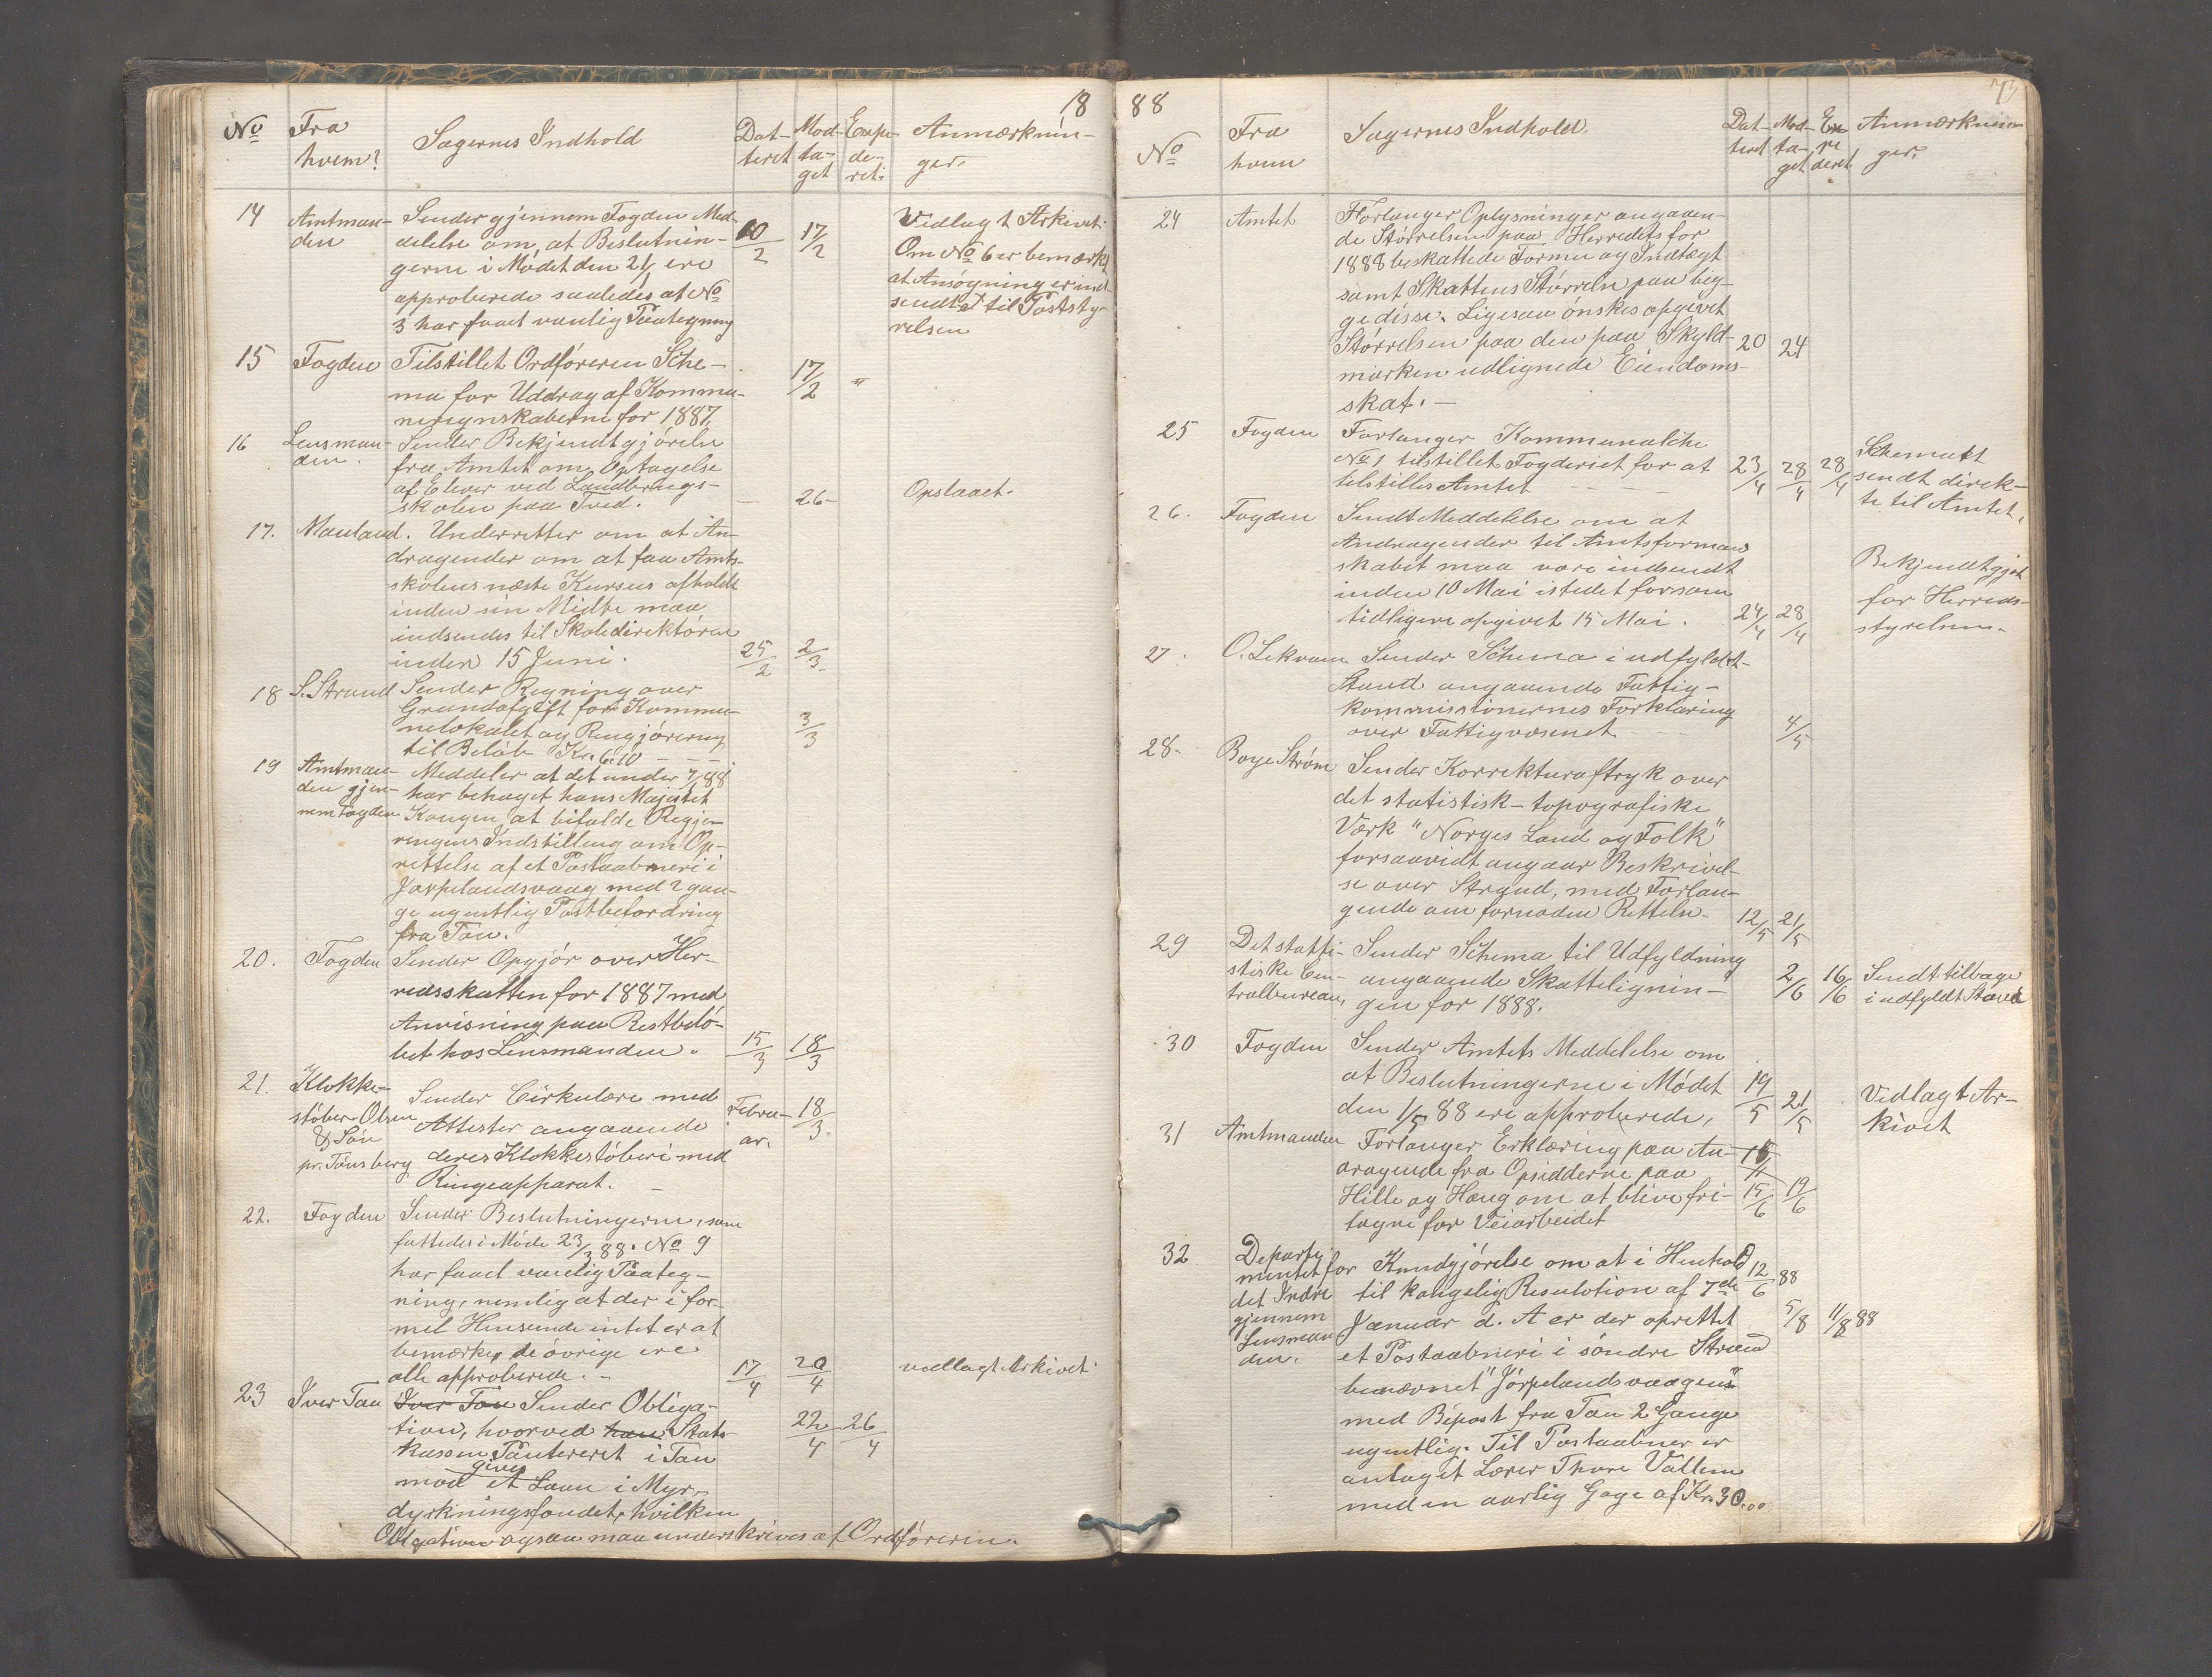 18
No
Fra
hvem?
Sagernes Indhold
Dat-
teret
Mod-
ta-
get
Expe-
de-
ret:
Anmærknin-
ger.
14
Amtman-
den
Sender gjennem Fogden Med-
delelse om, at Beslutnin-
gerne i Mødet den 2/1 ere
approberede saaledes at No
3 har faaet vanlig Paategning
10/2
17/2
Vedlagt Arkivet.
Om No 6 er bemærket
at Ansøgning er ind-
sendt til Poststy-
relsen
15
Fogden
Tilstillet Ordføreren Sche-
ma for Uddrag af Kommu-
neregnskaberne for 1887.
17/2
"
16
Lensman-
den.
Sender Bekjendtgjørelse
fra Amtet om Optagelse
af Elever ved Landbrugs-
skolen paa Tved.
—
26-
Opslaaet.
17.
Mauland.
Underretter om at An-
dragender om at faa Amts-
skolens næste Kursus afholdt
inden sin Midte maa
indsendes til Skoledirektøren
inden 15 Juni.
25/2
2/3.
18
S. Strand
Sender Regning over
Grundafgift for Kommu-
nelokalet og Rengjørering
til Beløb Kr. 6.10 - - -
3/3
19
Amtman-
den gjen-
nem Fogden
Meddeler at det under 7/1 88
har behaget hans Majestet
Kongen at bifalde Regjer-
ingens Indstilling om Op-
rettelse af et Postaabneri i
Jørpelandsvaag med 2 gan-
ge ugentlig Postbefordring
fra Tou.
20.
Fogden
Sender Opgjør over Her-
redsskatten for 1887 med
Anvisning paa Restbelø-
bet hos Lensmanden.
15/3
18/3
21.
Klokke-
støber Olsen
& Søn
pr. Tønsberg
Sender Cirkulære med
Attester angaaende
deres Klokkestøberi med
Ringeapparat. —
Febru-
ar.
18/3.
22.
Fogden
Sender Beslutningerne, som
fattedes i Møde 23/3 88. No 9
har faaet vanlig Paateg-
ning, nemlig at der i for-
mel Henseende intet er at
bemærke, de øvrige ere
alle approberede. -
17/4
20/4
vedlagt Arkivet.
23
Iver Tau
Iver Tau Sender Obliga-
tion, hvorved han Stats-
kassen Panteret i Tau
giver
mod et Laan i Myr-
dyrkningsfondet, hvilken
Obligation ogsaa maa underskrives af Ordføreren.
22/4
26/4
88
73
No
Fra
hvem
Sagernes Indhold.
Dat-
teret
Mod-
ta-
get
Ex
pe
deret
Anmærknin-
ger.
24
Amtet
Forlanger Oplysninger angaaen-
de Størrelsen paa Herredets for
1888 beskattede Formue og Indtægt
samt Skattens Størrelse paa beg-
ge disse. Ligesaa ønskes opgivet
Størrelsen paa den paa Skyld-
marken udlignede Eiendoms-
skat. —
20
24
25
Fogden
Forlanger Kommunalske
No 1 tilstillet Fogderiet for at
tilstilles Amtet - - -
23/4
28/4
28/4
Schemaet
sendt direk-
te til Amtet.
26.
Fogden
Sendt Meddelelse om at
Andragender til Amtsforman
skabet maa være indsendt
inden 10 Mai istedet forsom
tidligere opgivet 15 Mai.
24/4
28/4
Bekjendtgjøt
for Herreds-
styrelsen.
27.
O. Lekvam
Sender Schema i udfyldt
Stand angaaende Fattig-
kommissionernes Forklaring
over Fattigvæsenet
4/5
28-
Boye Strøm
Sender Korrekturaftryk over
det statistisk-topografiske
Værk "Norges Land og Folk"
forsaavidt angaar Beskrivel-
se over Strand, med Forlan-
gende om fornøden Rettelse
12/5
21/5
29
Det stati-
stiske Cen-
tralbureau,
Sender Schema til Udfyldning
angaaende Skatteligning-
gen for 1888.
2/6
16/6
Sendt tilbage
i udfyldt Stand
30
Fogden
Sender Amtets Meddelelse om
at Beslutningerne i Mødet
den 1/5 88 ere approberede,
19/5
21/5
Vedlagt Ar-
kivet
31
Amtmanden
Forlanger Erklæring paa An-
dragende fra Opsidderne paa
Hille og Haug om at blive fri-
tagne for Veiarbeidet
15/6
19/6
32
Departe-
mentet for
det Indre
gjennem
Lensman
den.
Kundgjørelse om at i Henhold
til kongelig Resulotion af 7de
Januar d. A er der oprettet
et Postaabneri i søndre Strand
benævnet "Jørpelandsvaagen"
med Bipost fra Tau 2 Gange
ugentlig. Til Postaabner er
antaget Lærer Thore Vatlem
med en aarlig Gage af Kr. 30.00
12/6 88
5/8
11/8 88